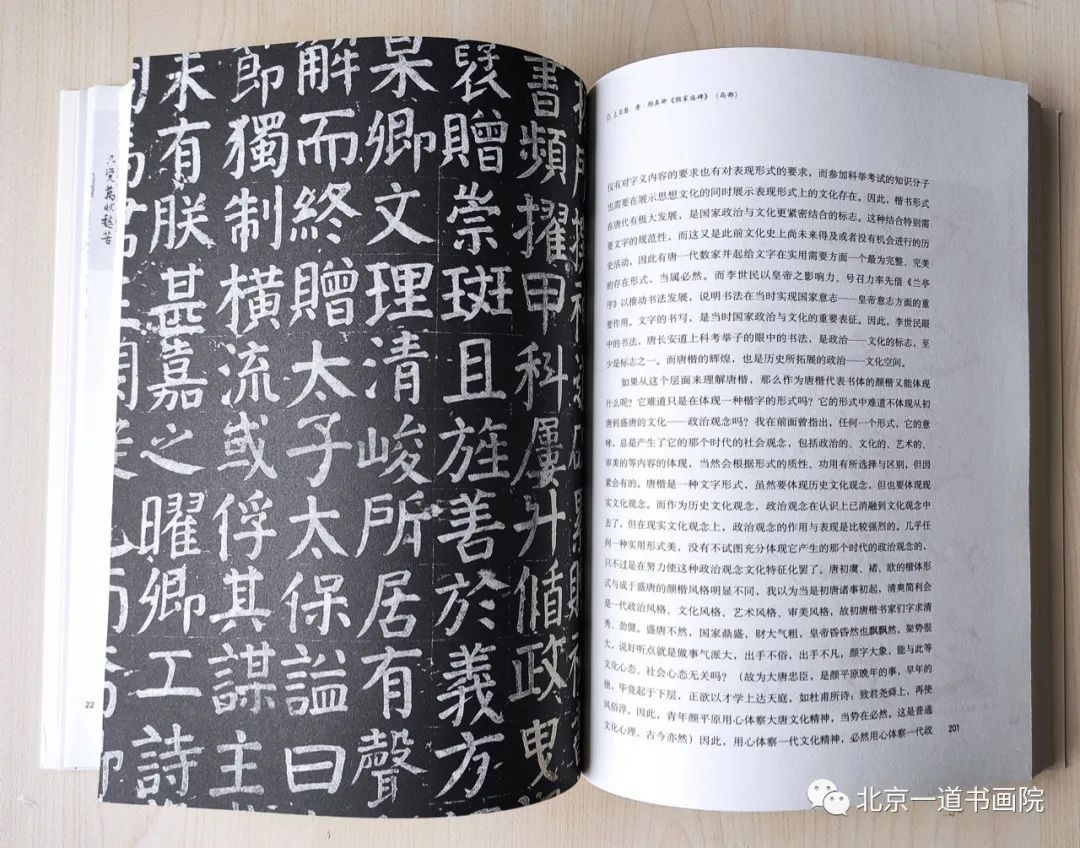 書頻擢甲科屢升循政曳
贈崇班且旌善於義方
杲卿文理清峻所居有聲
解而終贈太子太保謚曰
節獨制橫流或俘其謀主
未有朕甚嘉之曜卿工詩
22
◎ 王莫愁 唐·颜真卿《颜家庙碑》（局部）
仅有对字义内容的要求也有对表现形式的要求，而参加科举考试的知识分子
也需要在展示思想文化的同时展示表现形式上的文化存在。因此，楷书形式
在唐代有极大发展，是国家政治与文化更紧密结合的标志。这种结合特别需
要文字的规范性，而这又是此前文化史上尚未来得及或者没有机会进行的历
史活动，因此有唐一代数家并起给文字在实用需要方面一个最为完整、完美
的存在形式，当属必然。而李世民以皇帝之影响力、号召力率先借《兰亭
序》以推动书法发展，说明书法在当时实现国家意志——皇帝意志方面的重
要作用。文字的书写，是当时国家政治与文化的重要表征。因此，李世民眼
中的书法，唐长安道上科考举子的眼中的书法，是政治——文化的标志，至
少是标志之一。而唐楷的辉煌，也是历史所拓展的政治——文化空间。
如果从这个层面来理解唐楷，那么作为唐楷代表书体的颜楷又能体现
什么呢？它难道只是在体现一种楷字的形式吗？它的形式中难道不体现从初
唐到盛唐的文化——政治观念吗？我在前面曾指出，任何一个形式，它的意
味，总是产生了它的那个时代的社会观念，包括政治的、文化的、艺术的、
审美的等内容的体现，当然会根据形式的质性、功用有所选择与区别，但因
素会有的。唐楷是一种文字形式，虽然要体现历史文化观念，但也要体现现
实文化观念。而作为历史文化观念，政治观念在认识上已消融到文化观念中
去了，但在现实文化观念上，政治观念的作用与表现是比较强烈的。几乎任
何一种实用形式美，没有不试图充分体现它产生的那个时代的政治观念的，
只不过是在努力使这种政治观念文化特征化罢了。唐初虞、褚、欧的楷体形
式与成于盛唐的颜楷风格明显不同，我以为当是初唐诸事初起，清爽简利会
是一代政治风格、文化风格、艺术风格、审美风格，故初唐楷书家们字求清
秀、劲健。盛唐不然，国家鼎盛，财大气粗，皇帝昏昏然也飘飘然，架势很
大，说好听点就是做事气派大，出手不俗，出手不凡，颜字大象，能与此等
文化心态、社会心态无关吗？（故为大唐忠臣，是颜平原晚年的事，早年的
他，毕竟起于下层，正欲以才学上达天庭，如杜甫所诗：致君尧舜上，再使
风俗淳。因此，青年颜平原用心体察大唐文化精神，当势在必然。这是普通
文化心理，古今亦然）因此，用心体察一代文化精神，必然用心体察一代政
201
北京一道书画院